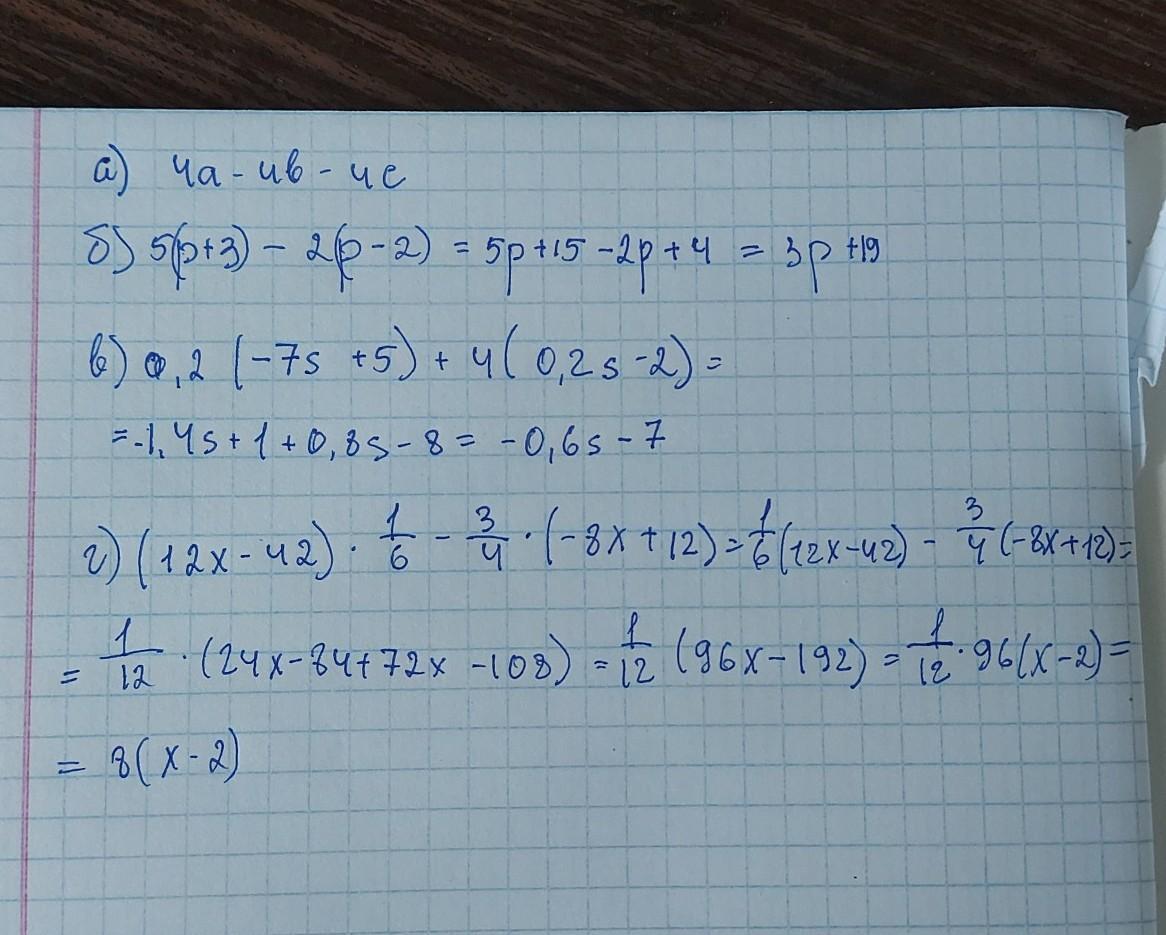 а) 4а - 4в - 4с
б) 5(p+3) - 2(p-2) = 5p+15-2p+4 = 3p+19
в) 0,2 (-7s +5) + 4( 0,2s -2) =
= -1,4s + 1 + 0,8s - 8 = -0,6s - 7
г) (12x - 42) · 1/6 - 3/4 · (-8x + 12) = 1/6 (12x-42) - 3/4 (-8x+12) =
= 1/12 · (24x-84+72x -108) = 1/12 (96x - 192) = 1/12 · 96(x-2) =
= 8(x-2)